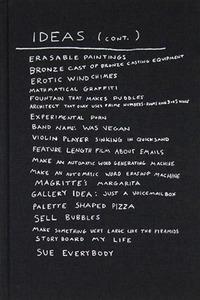 IDEAS (CONT.)
ERASABLE PAINTINGS
BRONZE CAST OF BRONZE CASTING EQUIPMENT
EROTIC WINDCHIMES
MATHEMATICAL GRAFFITI
FOUNTAIN THAT MAKES PUDDLES
ARCHITECT THAT ONLY USES PRIME NUMBERS
EXPERIMENTAL PORN
BAND NAME: WAS VEGAN
VIOLIN PLAYER SINKING IN QUICKSAND
FEATURE LENGTH FILM ABOUT EMAILS
MAKE AN AUTOMATIC WORD GENERATING MACHINE
MAKE AN AUTOMATIC WORD ERASING MACHINE
MAGRITTE'S MARGARITA
GALLERY IDEA: JUST A VOICEMAILBOX
PALETTE SHAPED PIZZA
SELL BUBBLES
MAKE SOMETHING VERY LARGE LIKE THE PYRAMIDS
STORYBOARD MY LIFE
SUE EVERYBODY